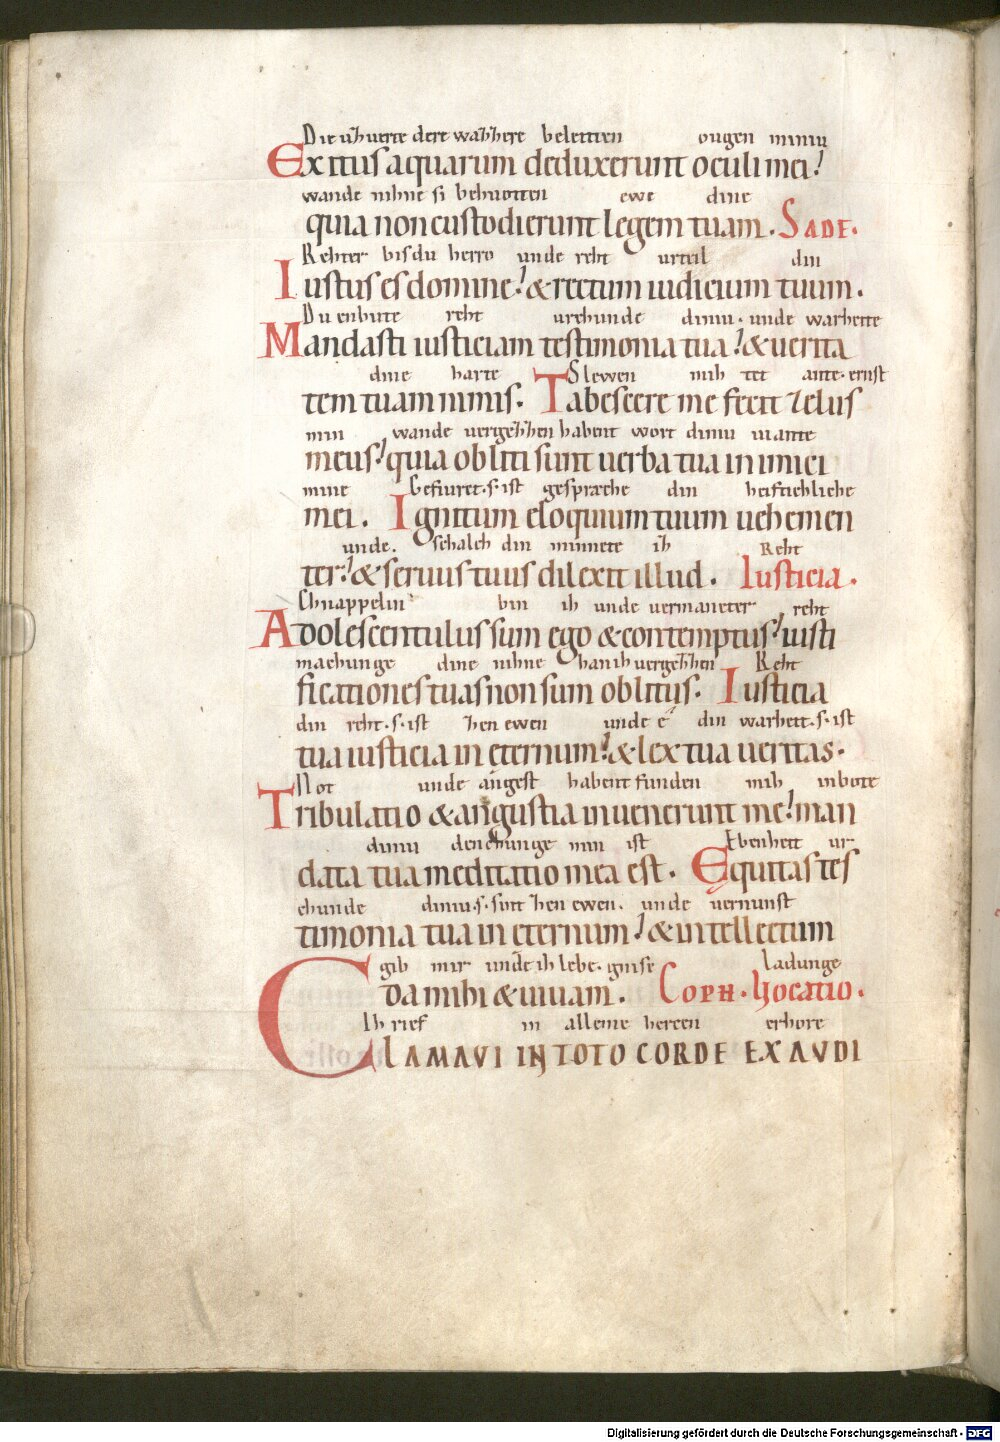 Die uͦhuerte dere wazzere beleitten ougen miniu
Exitus aquarum deduxerunt oculi mei!
wande nihne si behuotten ewe dine
quia non custodierunt legem tuam. SADE.
Rehter bisdu herro unde reht urteil din
Iustus es domine! & rectum iudicium tuum.
Du enbute reht urchunde diniu. unde warheite
Mandasti iusticiam testimonia tua! & uerita
dine harte Slewen mih tet ante. ernst
tem tuam nimis. Tabescere me fecit zelus
min wande uergezzen habent wort diniu uiante
meus! quia obliti sunt uerba tua inimici
mine Gefiuret. s. ist gespræche din heiftichliche
mei. Ignitum eloquium tuum uehemen
unde. schalch din minnete ih Reht
ter! & seruus tuus dilexit illud. Iusticia.
Chnappelin bin ih unde uermaneter reht
Adolescentulus sum ego & contemptus! iusti
machunge dine nihne han ih uergezzen Reht
ficationes tuas non sum oblitus. Iusticia
din reht. s. ist zen ewen unde e din warheit. s. ist
tua iusticia in eternum! & lex tua ueritas.
Not unde angest habent funden mih inbote
Tribulatio & angustia inuenerunt me! man
diniu denchunge min ist Ebenheit ur-
data tua meditatio mea est. Equitas tes
chunde diniu. s. sint zen ewen. unde uernunst
timonia tua in eternum! & intellectum
gib mir unde ih lebe. gwisse ladunge
da mihi & uiuam. COPH. Vocatio.
Ih rief in alleme hercen erhore
CLAMAVI IN TOTO CORDE EXAVDI
Digitalisierung gefördert durch die Deutsche Forschungsgemeinschaft - DFG